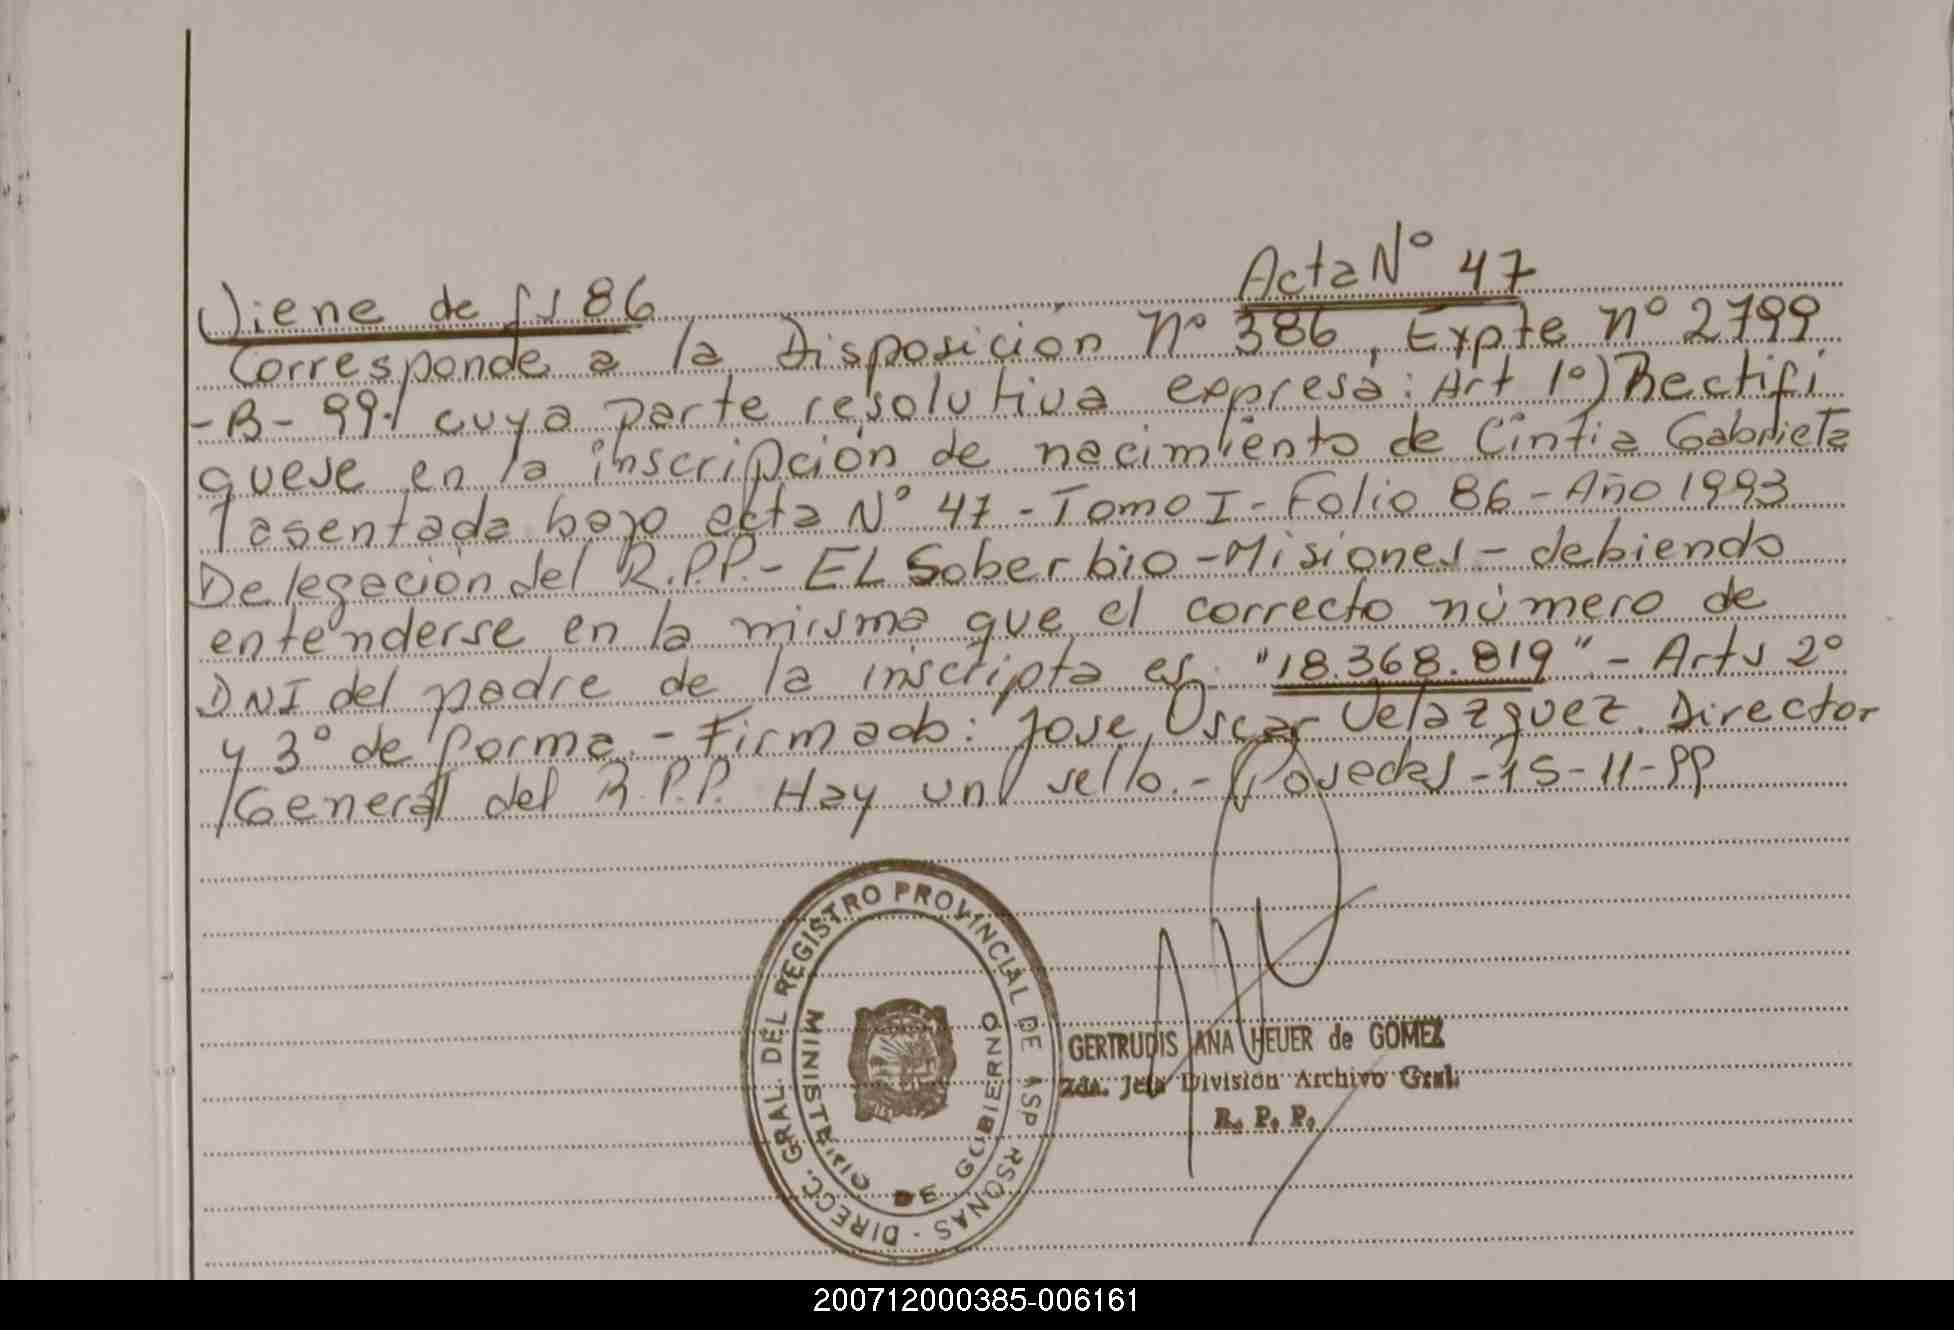 Viene de fs 86
Acta Nº 47
Corresponde a la Disposición Nº 386, Expte nº 2799
-B-99- cuya parte resolutiva expresa: Art 1º) Rectifi
quese en la inscripción de nacimiento de Cintia Gabriela
asentada bajo acta Nº 47 - Tomo I - Folio 86 - Año 1993
Delegación del R.P.P. - EL Soberbio - Misiones - debiendo
entenderse en la misma que el correcto número de
DNI del padre de la inscripta es: "18.368.819" - Arts 2º
y 3º de forma. - Firmado: Jose Oscar Velazquez. Director
General del R.P.P. Hay un sello. - Posadas - 15-11-99
DIRECC. GRAL DEL REGISTRO PROVINCIAL DE ASP RSONAS -
MINISTERIO DE GOBIERNO
GERTRUDIS ANA HEUER de GOMEZ
2da. Jefa División Archivo Gral.
R. P. P.
200712000385-006161